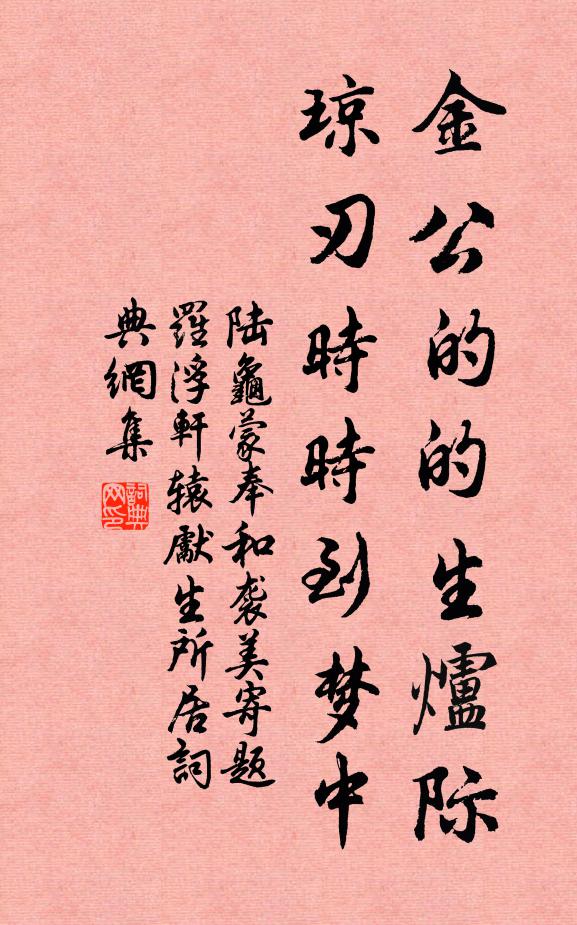 金公的的生爐际
琼刃時時到梦中
陆龜蒙奉和袭美寄题
羅浮軒辕獻生所居詞
典網集
詞典网印